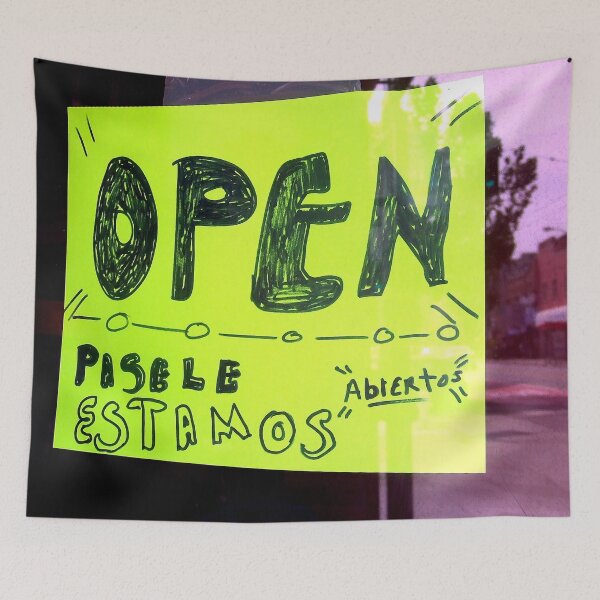 OPEN
PASELE
ESTAMOS "AbiERTOS"